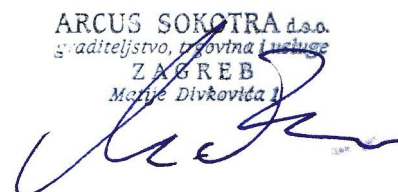 ARCUS SOKOTRA d.o.o.
graditeljstvo, trgovina i usluge
ZAGREB
Matije Divkovića 1